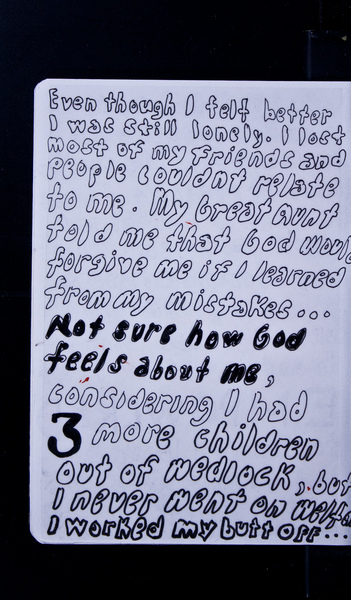 Even though I felt better
I was still lonely. I lost
most of my friends and
people couldnt relate
to me. My Great Aunt
told me that God would
forgive me if I learned
from my mistakes...
Not sure how God
feels about me,
considering I had
3 more children
out of wedlock, but
I never went on welfa
I worked my butt off...